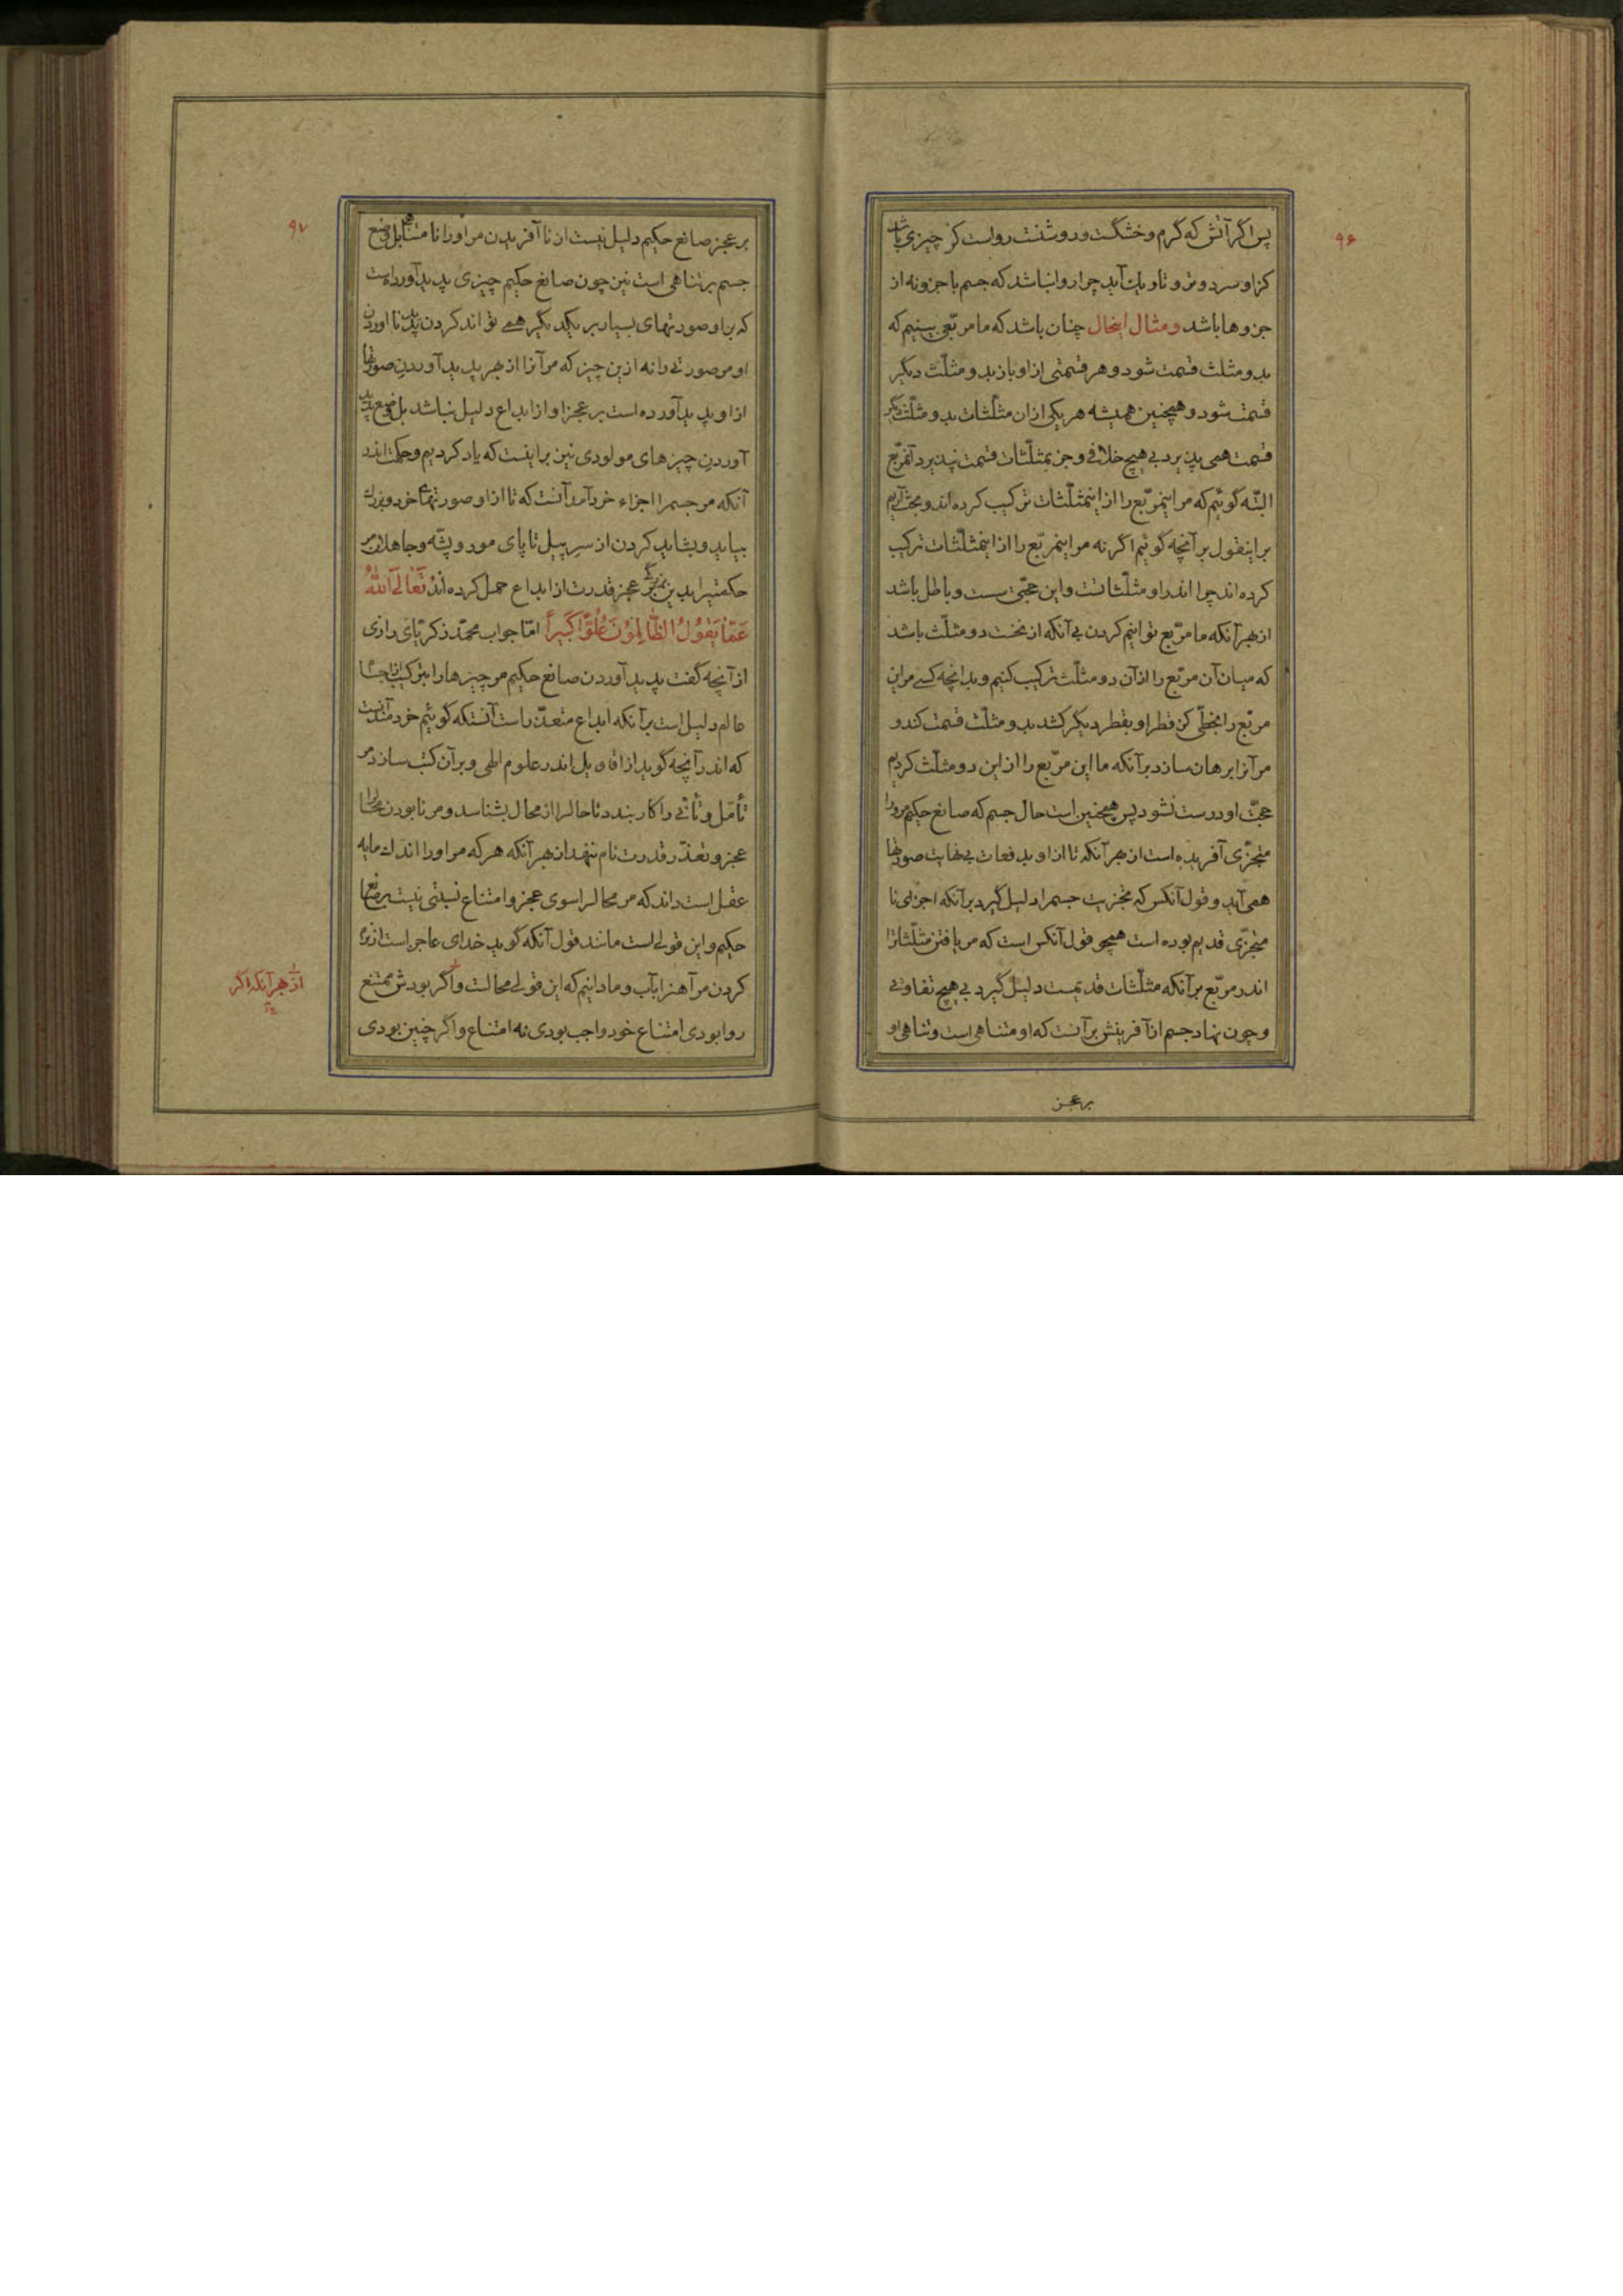 ۹۶
پس اگر آتش که گرم و خشکست و روشنست رواست کز چیزی باشد
کز او سرد و تر و تاریک آید چرا روا نباشد که جسم با جزو نه از
جزوها باشد و مثال اینحال چنان باشد که ما مربّعی بینیم که
بدو مثلث قسمت شود و هر قسمتی از او باز بدو مثلّث دیگر
قسمت شود و همچنین همیشه هر یکی از ان مثلّثات بدو مثلّث دیگر
قسمت همی پذیرد بی هیچ خلافی و جز بمثلّثات قسمت نپذیرد آنمربّع
البتّه گوئیم که مر اینمربّع را از اینمثلّثات ترکیب کرده اند و بحث آریم
بر اینقول بر آنچه گوئیم اگر نه مر اینمربّع را از اینمثلّثات ترکیب
کرده اند چرا اندر او مثلّثاتست و این حجّتی سست و باطل باشد
از بهر آنکه ما مربّع توانیم کردن بی آنکه از نخست دو مثلّث باشد
که میان آن مربّع را از آن دو مثلّث ترکیب کنیم و بدانچه کسی مر این
مربّع را بخطّی کز قطر او بقطر دیگر کشد بدو مثلّث قسمت کند و
مر آنرا برهان سازد بر آنکه ما این مربّع را از این دو مثلّث کردیم
حجّت او درست نشود پس همچنین است حال جسم که صانع حکیم مر او را
متجزّی آفریده است از بهر آنکه تا از او بدفعات بی نهایت صورتها
همی آید و قول آنکس که متجزّیت جسم را دلیل گیرد بر آنکه اجزای نا
متجزّی قدیم بوده است همچو قول آنکس است که مر یافتن مثلّثاترا
اندر مربّع بر آنکه مثلّثات قدیمست دلیل گیرد بی هیچ تفاوتی
و چون نهاد جسم از آفرینش بر آنست که او متناهی است و تناهی او
بر عجز
۹۷
بر عجز صانع حکیم دلیل نیست از نا آفریدن مر او را نا متناهی بل وضع
جسم بر تناهی است نیز چون صانع حکیم چیزی پدید آورد است
که بر او صورتهای بسیار بر یکدیگر همی تواند کردن پدید نا اوردن
او مر صورتی را نه از ین چیز که مر آنرا از بهر پدید آوردن صورتها
از او پدید آورده است بر عجز او از ابداع دلیل نباشد بل وضع پدید
آوردن چیزهای مولودی نیز بر اینست که یاد کردیم و حکمت اندر
آنکه مر جسم را اجزاء خرد آمد آنست که تا از او صورتهاء خرد و بزرگ
بیاید و بشاید کردن از سر پیل تا پای مور و پشّه و جاهلان مر
حکمتیرا بدین بزرگی عجز قدرت از ابداع حمل کرده اند تَعَالَی اللّٰهُ
عَمَّا یَقُولُ الظّٰالِمُونَ عُلُوًّا کَبیراً امّا جواب محمّد زکریّای رازی
از آنچه گفت پدید آوردن صانع حکیم مر چیزها را بترکیب از اجسا
عالم دلیل است بر آنکه ابداع متعذّر است آنستکه گوئیم خردمند آنست
که اندر آنچه گوید از اقاویل اندر علوم الهی و بر آن کتب سازد مر
تأمّل و تأنّی را کار بندد تا حال را از محال بشناسد و مر نابودن محال را
عجز و تعذّر قدرت نام ننهد از بهر آنکه هر که مر او را اندک مایه
عقل است داند که مر محال را سوی عجز و امتناع نسبتی نیست بر صانع
حکیم و این قولی است مانند قول آنکه گوید خدای عاجز است از تر
کردن مر آهنرا بآب و ما دانیم که این قولی محالست و اگر بودش ممتنع
روا بودی امتناع خود واجب بودی نه امتناع و اگر چنین بودی
از بهر آنکه اگر